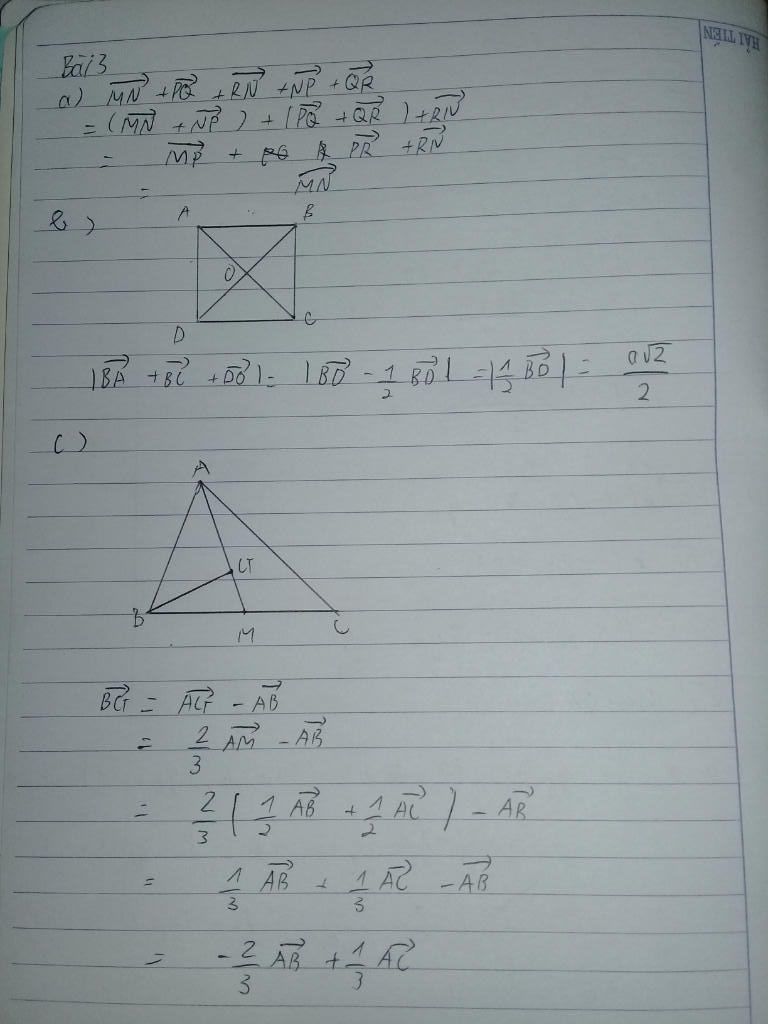 HẢI TIẾN
Bài 3
a) $\overrightarrow{MN} + \overrightarrow{PQ} + \overrightarrow{RN} + \overrightarrow{NP} + \overrightarrow{QR}$
$= (\overrightarrow{MN} + \overrightarrow{NP}) + (\overrightarrow{PQ} + \overrightarrow{QR}) + \overrightarrow{RN}$
$= \overrightarrow{MP} + \overrightarrow{PR} + \overrightarrow{RN}$
$= \overrightarrow{MN}$
b)
A B
O
D C
$|\overrightarrow{BA} + \overrightarrow{BC} + \overrightarrow{DO}| = |\overrightarrow{BD} - \frac{1}{2}\overrightarrow{BD}| = |\frac{1}{2}\overrightarrow{BD}| = \frac{a\sqrt{2}}{2}$
c)
A
G
B M C
$\overrightarrow{BG} = \overrightarrow{AG} - \overrightarrow{AB}$
$= \frac{2}{3}\overrightarrow{AM} - \overrightarrow{AB}$
$= \frac{2}{3}(\frac{1}{2}\overrightarrow{AB} + \frac{1}{2}\overrightarrow{AC}) - \overrightarrow{AB}$
$= \frac{1}{3}\overrightarrow{AB} + \frac{1}{3}\overrightarrow{AC} - \overrightarrow{AB}$
$= -\frac{2}{3}\overrightarrow{AB} + \frac{1}{3}\overrightarrow{AC}$